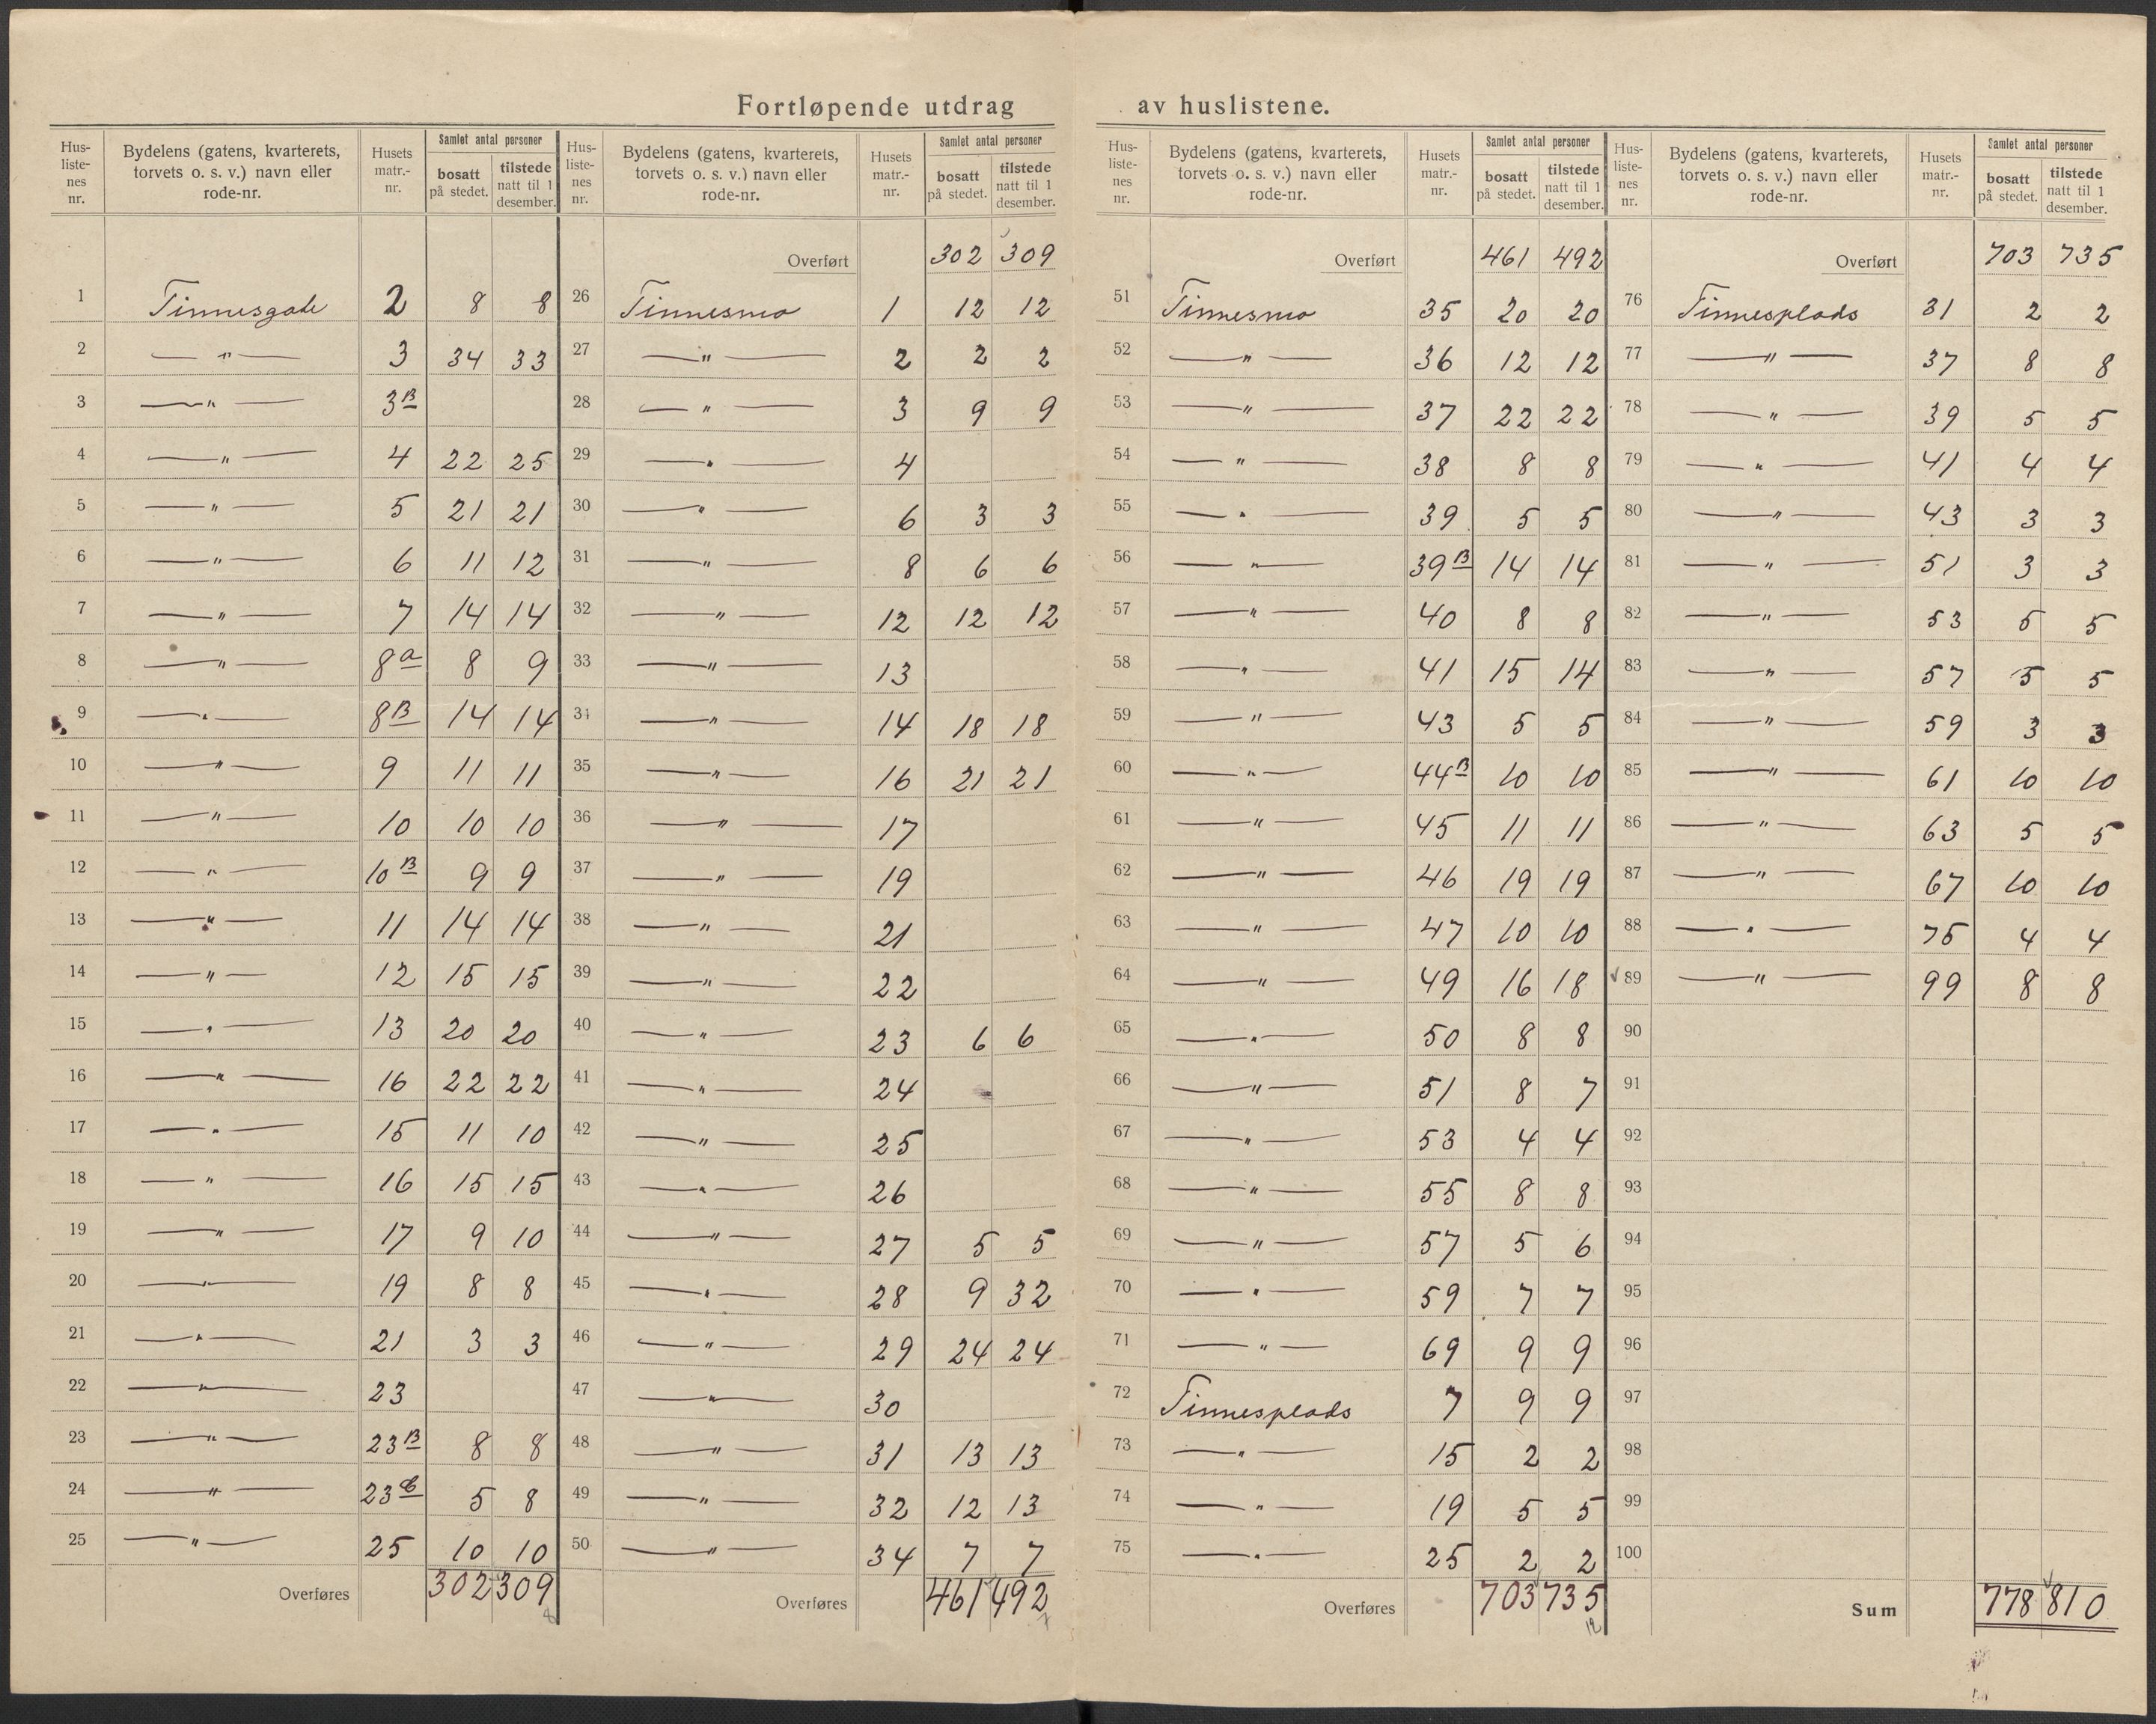 Fortløpende utdrag av huslistene.
Hus-
liste-
nes
nr.
Bydelens (gatens, kvarterets,
torvets o. s. v.) navn eller
rode-nr.
Husets
matr.-
nr.
Samlet antal personer
bosatt
på stedet.
tilstede
natt til 1
desember.
1 Tinnesgade 2 8 8
2 — " — 3 34 33
3 — " — 3B
4 — " — 4 22 25
5 — " — 5 21 21
6 — " — 6 11 12
7 — " — 7 14 14
8 — " — 8a 8 9
9 — " — 8B 14 14
10 — " — 9 11 11
11 — " — 10 10 10
12 — " — 10B 9 9
13 — " — 11 14 14
14 — " — 12 15 15
15 — " — 13 20 20
16 — " — 16 22 22
17 — " — 15 11 10
18 — " — 16 15 15
19 — " — 17 9 10
20 — " — 19 8 8
21 — " — 21 3 3
22 — " — 23
23 — " — 23B 8 8
24 — " — 23 5 8
25 — " — 25 10 10
Overføres 302 309
Hus-
liste-
nes
nr.
Bydelens (gatens, kvarterets,
torvets o. s. v.) navn eller
rode-nr.
Husets
matr.-
nr.
Samlet antal personer
bosatt
på stedet.
tilstede
natt til 1
desember.
Overført 302 309
26 Tinnesmo 1 12 12
27 — " — 2 2 2
28 — " — 3 9 9
29 — " — 4
30 — " — 6 3 3
31 — " — 8 6 6
32 — " — 12 12 12
33 — " — 13
34 — " — 14 18 18
35 — " — 16 21 21
36 — " — 17
37 — " — 19
38 — " — 21
39 — " — 22
40 — " — 23 6 6
41 — " — 24
42 — " — 25
43 — " — 26
44 — " — 27 5 5
45 — " — 28 9 32
46 — " — 29 24 24
47 — " — 30
48 — " — 31 13 13
49 — " — 32 12 13
50 — " — 34 7 7
Overføres 461 492
Hus-
liste-
nes
nr.
Bydelens (gatens, kvarterets,
torvets o. s. v.) navn eller
rode-nr.
Husets
matr.-
nr.
Samlet antal personer
bosatt
på stedet.
tilstede
natt til 1
desember.
Overført 461 492
51 Tinnesmo 35 20 20
52 — " — 36 12 12
53 — " — 37 22 22
54 — " — 38 8 8
55 — " — 39 5 5
56 — " — 39B 14 14
57 — " — 40 8 8
58 — " — 41 15 14
59 — " — 43 5 5
60 — " — 44B 10 10
61 — " — 45 11 11
62 — " — 46 19 19
63 — " — 47 10 10
64 — " — 49 16 18
65 — " — 50 8 8
66 — " — 51 8 7
67 — " — 53 4 4
68 — " — 55 8 8
69 — " — 57 5 6
70 — " — 59 7 7
71 — " — 69 9 9
72 Tinnesplads 7 9 9
73 — " — 15 2 2
74 — " — 19 5 5
75 — " — 25 2 2
Overføres 703 735
12
Hus-
liste-
nes
nr.
Bydelens (gatens, kvarterets,
torvets o. s. v.) navn eller
rode-nr.
Husets
matr.-
nr.
Samlet antal personer
bosatt
på stedet.
tilstede
natt til 1
desember.
Overført 703 735
76 Tinnesplads 31 2 2
77 — " — 37 8 8
78 — " — 39 5 5
79 — " — 41 4 4
80 — " — 43 3 3
81 — " — 51 3 3
82 — " — 53 5 5
83 — " — 57 5 5
84 — " — 59 3 3
85 — " — 61 10 10
86 — " — 63 5 5
87 — " — 67 10 10
88 — " — 75 4 4
89 — " — 99 8 8
90
91
92
93
94
95
96
97
98
99
100
Sum 778 810